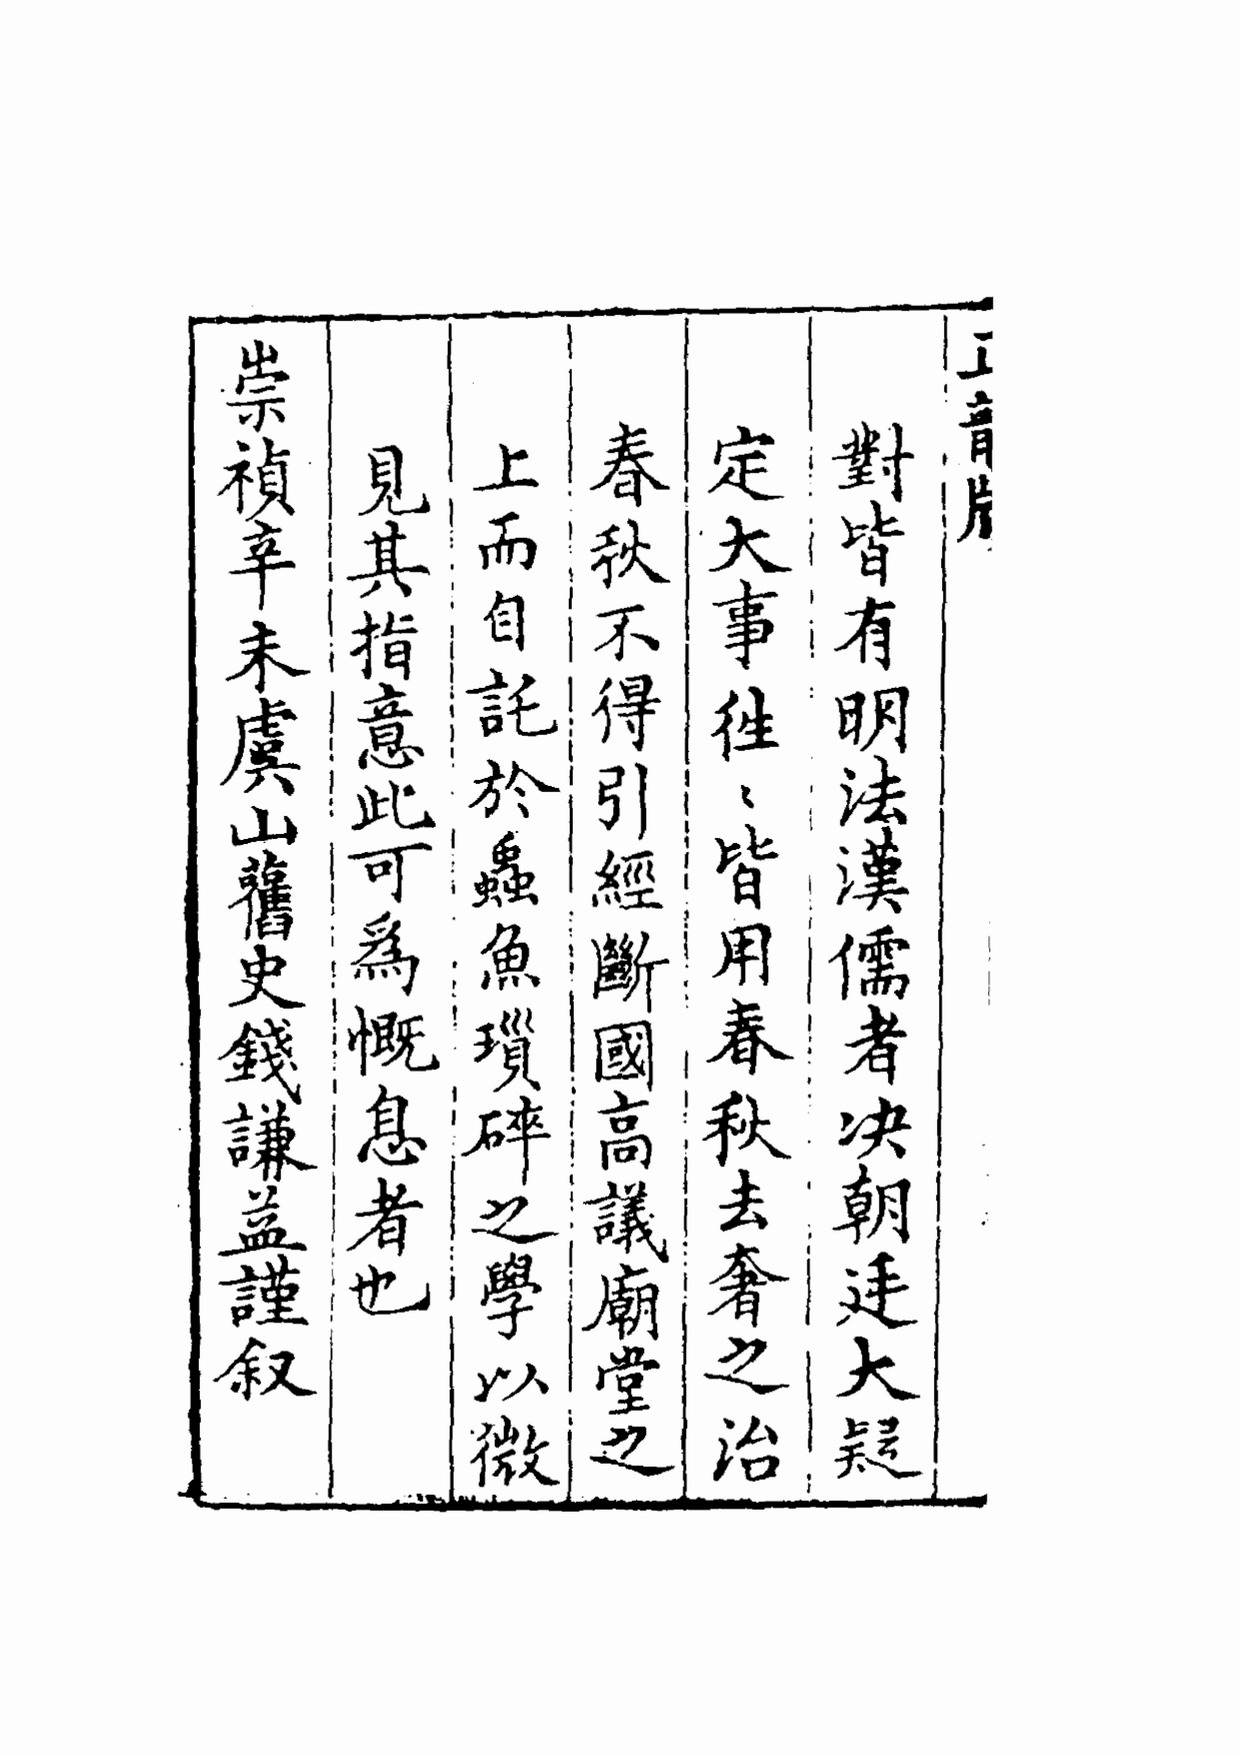 對皆有明法漢儒者决朝廷大疑
定大事徃〻皆用春秋去奢之治
春秋不得引經斷國高議廟堂之
上而自託於蟲魚瑣碎之學以微
見其指意此可爲慨息者也
崇禎辛未虞山舊史錢謙益謹叙